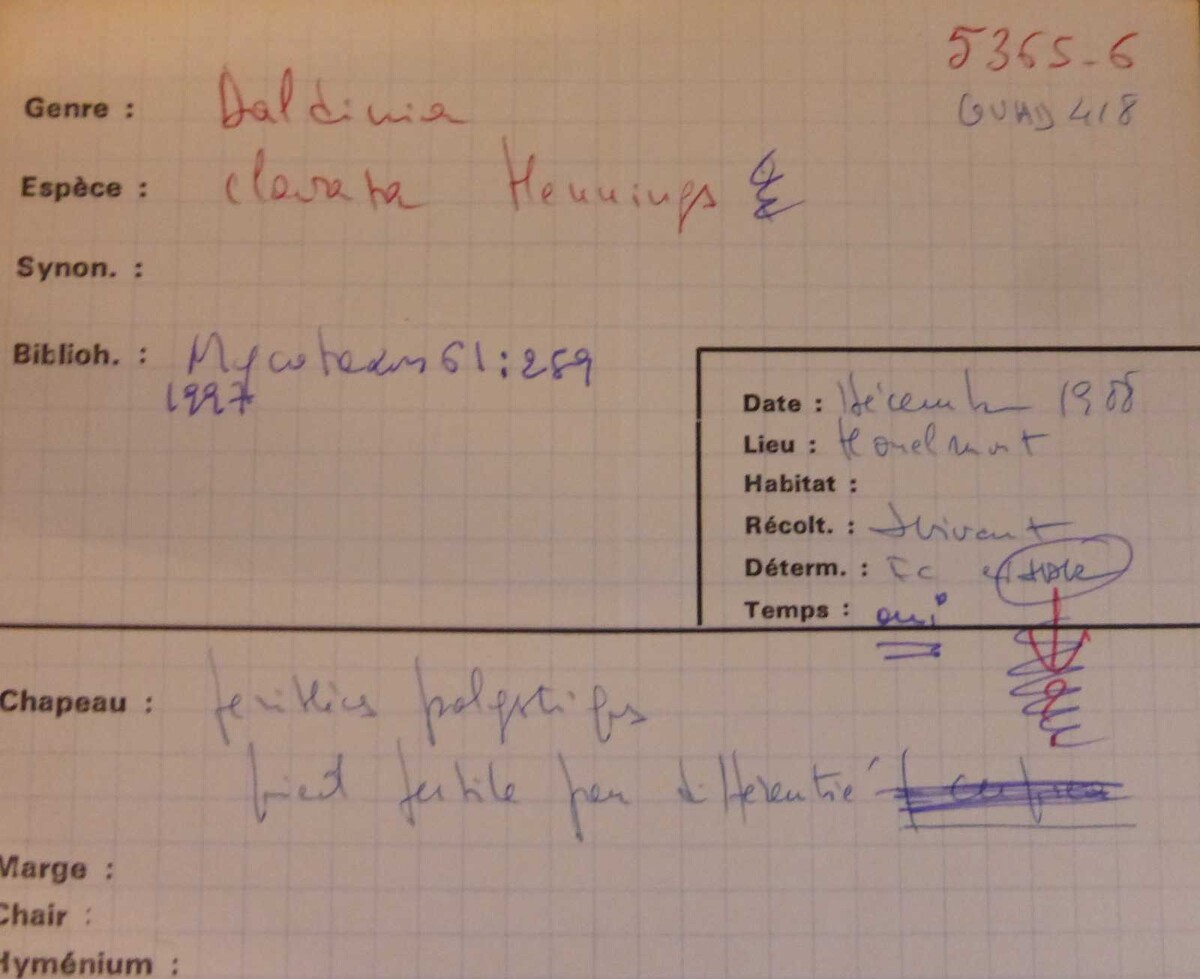 5365-6
GUAD 418
Genre : Daldinia
Espèce : clavata Hennings
Synon. :
Biblioh. : Mycotaxon 61:259
1997
Date : Décembre 1988
Lieu : Houelmont
Habitat :
Récolt. :
Déterm. :
Temps : oui
Chapeau : périthèces polystiques
pied fertile peu différentié
Marge :
Chair :
Hyménium :